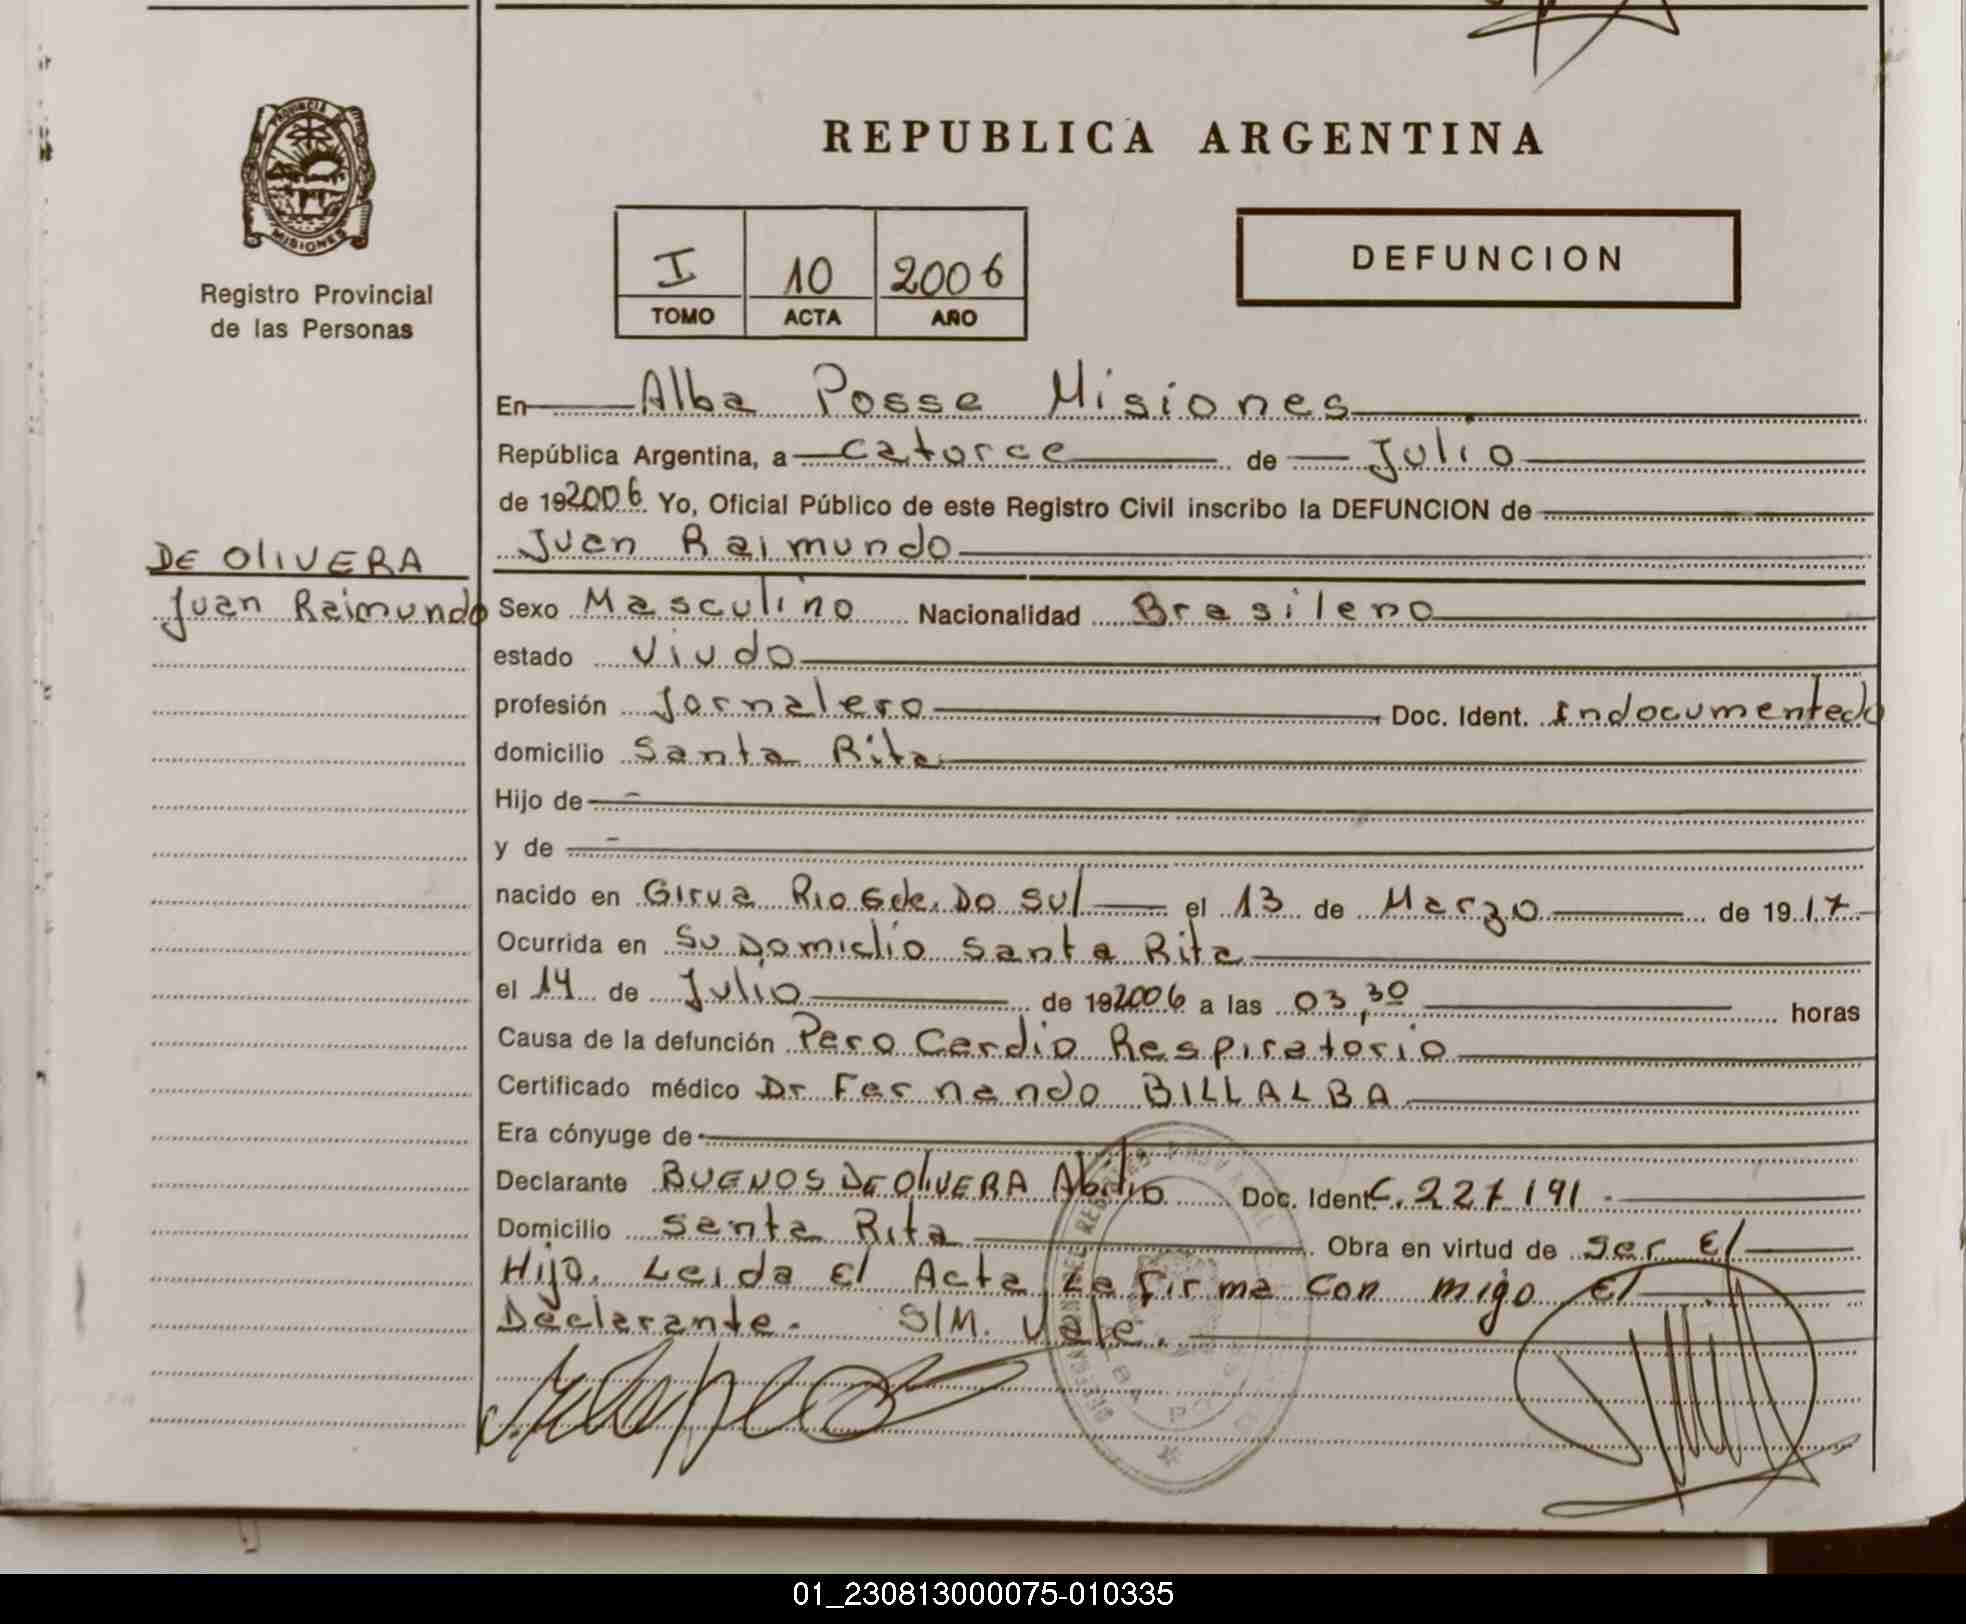 REPUBLICA ARGENTINA
PROVINCIA DE
MISIONES
Registro Provincial
de las Personas
I 10 2006
TOMO ACTA AÑO
DEFUNCION
En Alba Posse Misiones
República Argentina, a catorce de Julio
de 192006 Yo, Oficial Público de este Registro Civil inscribo la DEFUNCION de
DE OLIVERA
Juan Raimundo
Juan Raimundo
Sexo Masculino Nacionalidad Brasileno
estado Viudo
profesión Jornalero Doc. Ident. Indocumentado
domicilio Santa Rita
Hijo de -
y de -
nacido en Girua Rio Gde. Do Sul el 13 de Marzo de 19 17
Ocurrida en Su Domiclio Santa Rita
el 14 de Julio de 192006 a las 03,30 horas
Causa de la defunción Paro Cardio Respiratorio
Certificado médico Dr Fernando BILLALBA
Era cónyuge de
Declarante BUENOS DE OLIVERA Abilio Doc. Ident C. 227 191.
Domicilio Santa Rita Obra en virtud de ser El
Hijo. Leida El Acta La Firma Con migo El
Declarante. S/M. Vale.
ALBA POSSE
01_230813000075-010335